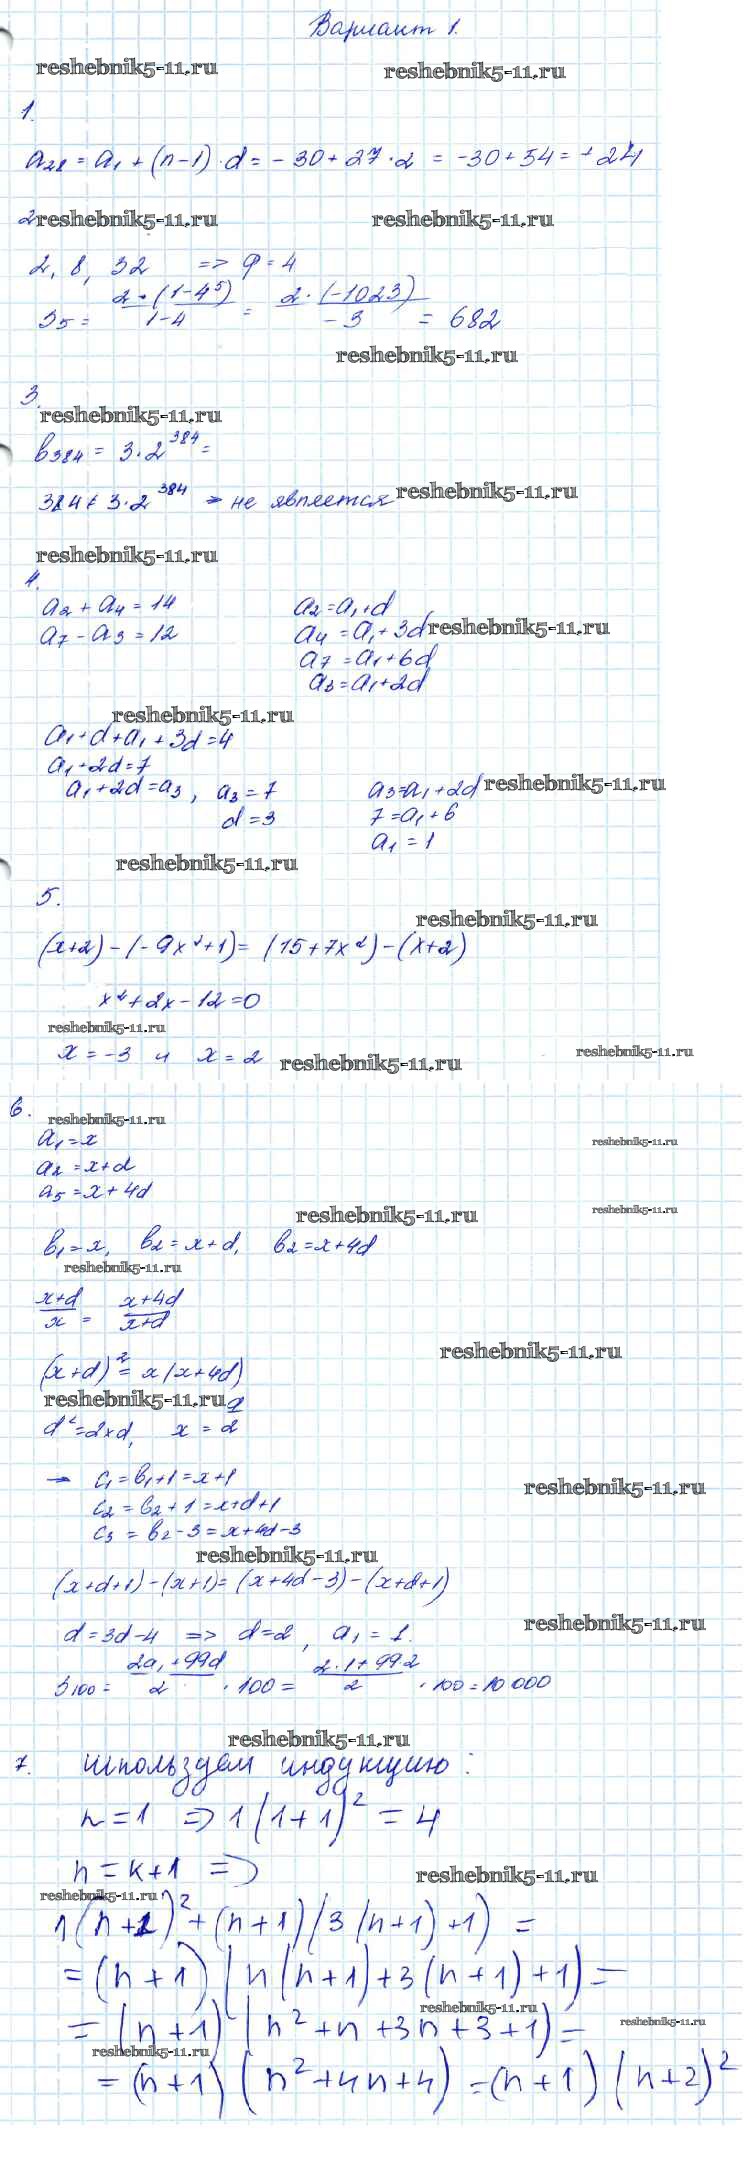 Вариант 1.
reshebnik5-11.ru reshebnik5-11.ru
1.
a₂₈ = a₁ + (n-1)·d = -30 + 27·2 = -30 + 54 = +24
2 reshebnik5-11.ru reshebnik5-11.ru
2, 8, 32 => q = 4
S₅ = 2·(1-4⁵) / 1-4 = 2·(-1023) / -3 = 682
reshebnik5-11.ru
3.
reshebnik5-11.ru
b₃₈₄ = 3·2³⁸⁴ =
384 ≠ 3·2³⁸⁴ → не является reshebnik5-11.ru
reshebnik5-11.ru
4.
a₂ + a₄ = 14 a₂ = a₁ + d
a₇ - a₃ = 12 a₄ = a₁ + 3d reshebnik5-11.ru
a₇ = a₁ + 6d
a₃ = a₁ + 2d
reshebnik5-11.ru
a₁ + d + a₁ + 3d = 4
a₁ + 2d = 7
a₁ + 2d = a₃, a₃ = 7 a₃ = a₁ + 2d reshebnik5-11.ru
d = 3 7 = a₁ + 6
a₁ = 1
reshebnik5-11.ru
5.
reshebnik5-11.ru
(x+2) - (-9x²+1) = (15+7x²) - (x+2)
x² + 2x - 12 = 0
reshebnik5-11.ru
x = -3 и x = 2 reshebnik5-11.ru reshebnik5-11.ru
6.
reshebnik5-11.ru
a₁ = x reshebnik5-11.ru
a₂ = x + d
a₅ = x + 4d
reshebnik5-11.ru reshebnik5-11.ru
b₁ = x, b₂ = x + d, b₂ = x + 4d
reshebnik5-11.ru
x+d / x = x+4d / x+d
reshebnik5-11.ru
(x+d)² = x(x+4d)
reshebnik5-11.ru
d² = 2xd, x = d/2
→ c₁ = b₁ + 1 = x + 1
reshebnik5-11.ru
c₂ = b₂ + 1 = x + d + 1
c₃ = b₂ - 3 = x + 4d - 3
reshebnik5-11.ru
(x+d+1) - (x+1) = (x+4d-3) - (x+d+1)
reshebnik5-11.ru
d = 3d - 4 => d = 2, a₁ = 1.
S₁₀₀ = 2a₁ + 99d / 2 · 100 = 2·1 + 99·2 / 2 · 100 = 10 000
reshebnik5-11.ru
7. Используем индукцию:
n = 1 => 1(1+1)² = 4
n = k+1 => reshebnik5-11.ru
reshebnik5-11.ru
1(n+1)² + (n+1)(3(n+1)+1) =
= (n+1)(n(n+1)+3(n+1)+1) =
reshebnik5-11.ru
= (n+1)(n²+n+3n+3+1) = reshebnik5-11.ru
reshebnik5-11.ru
= (n+1)(n²+4n+4) = (n+1)(n+2)²